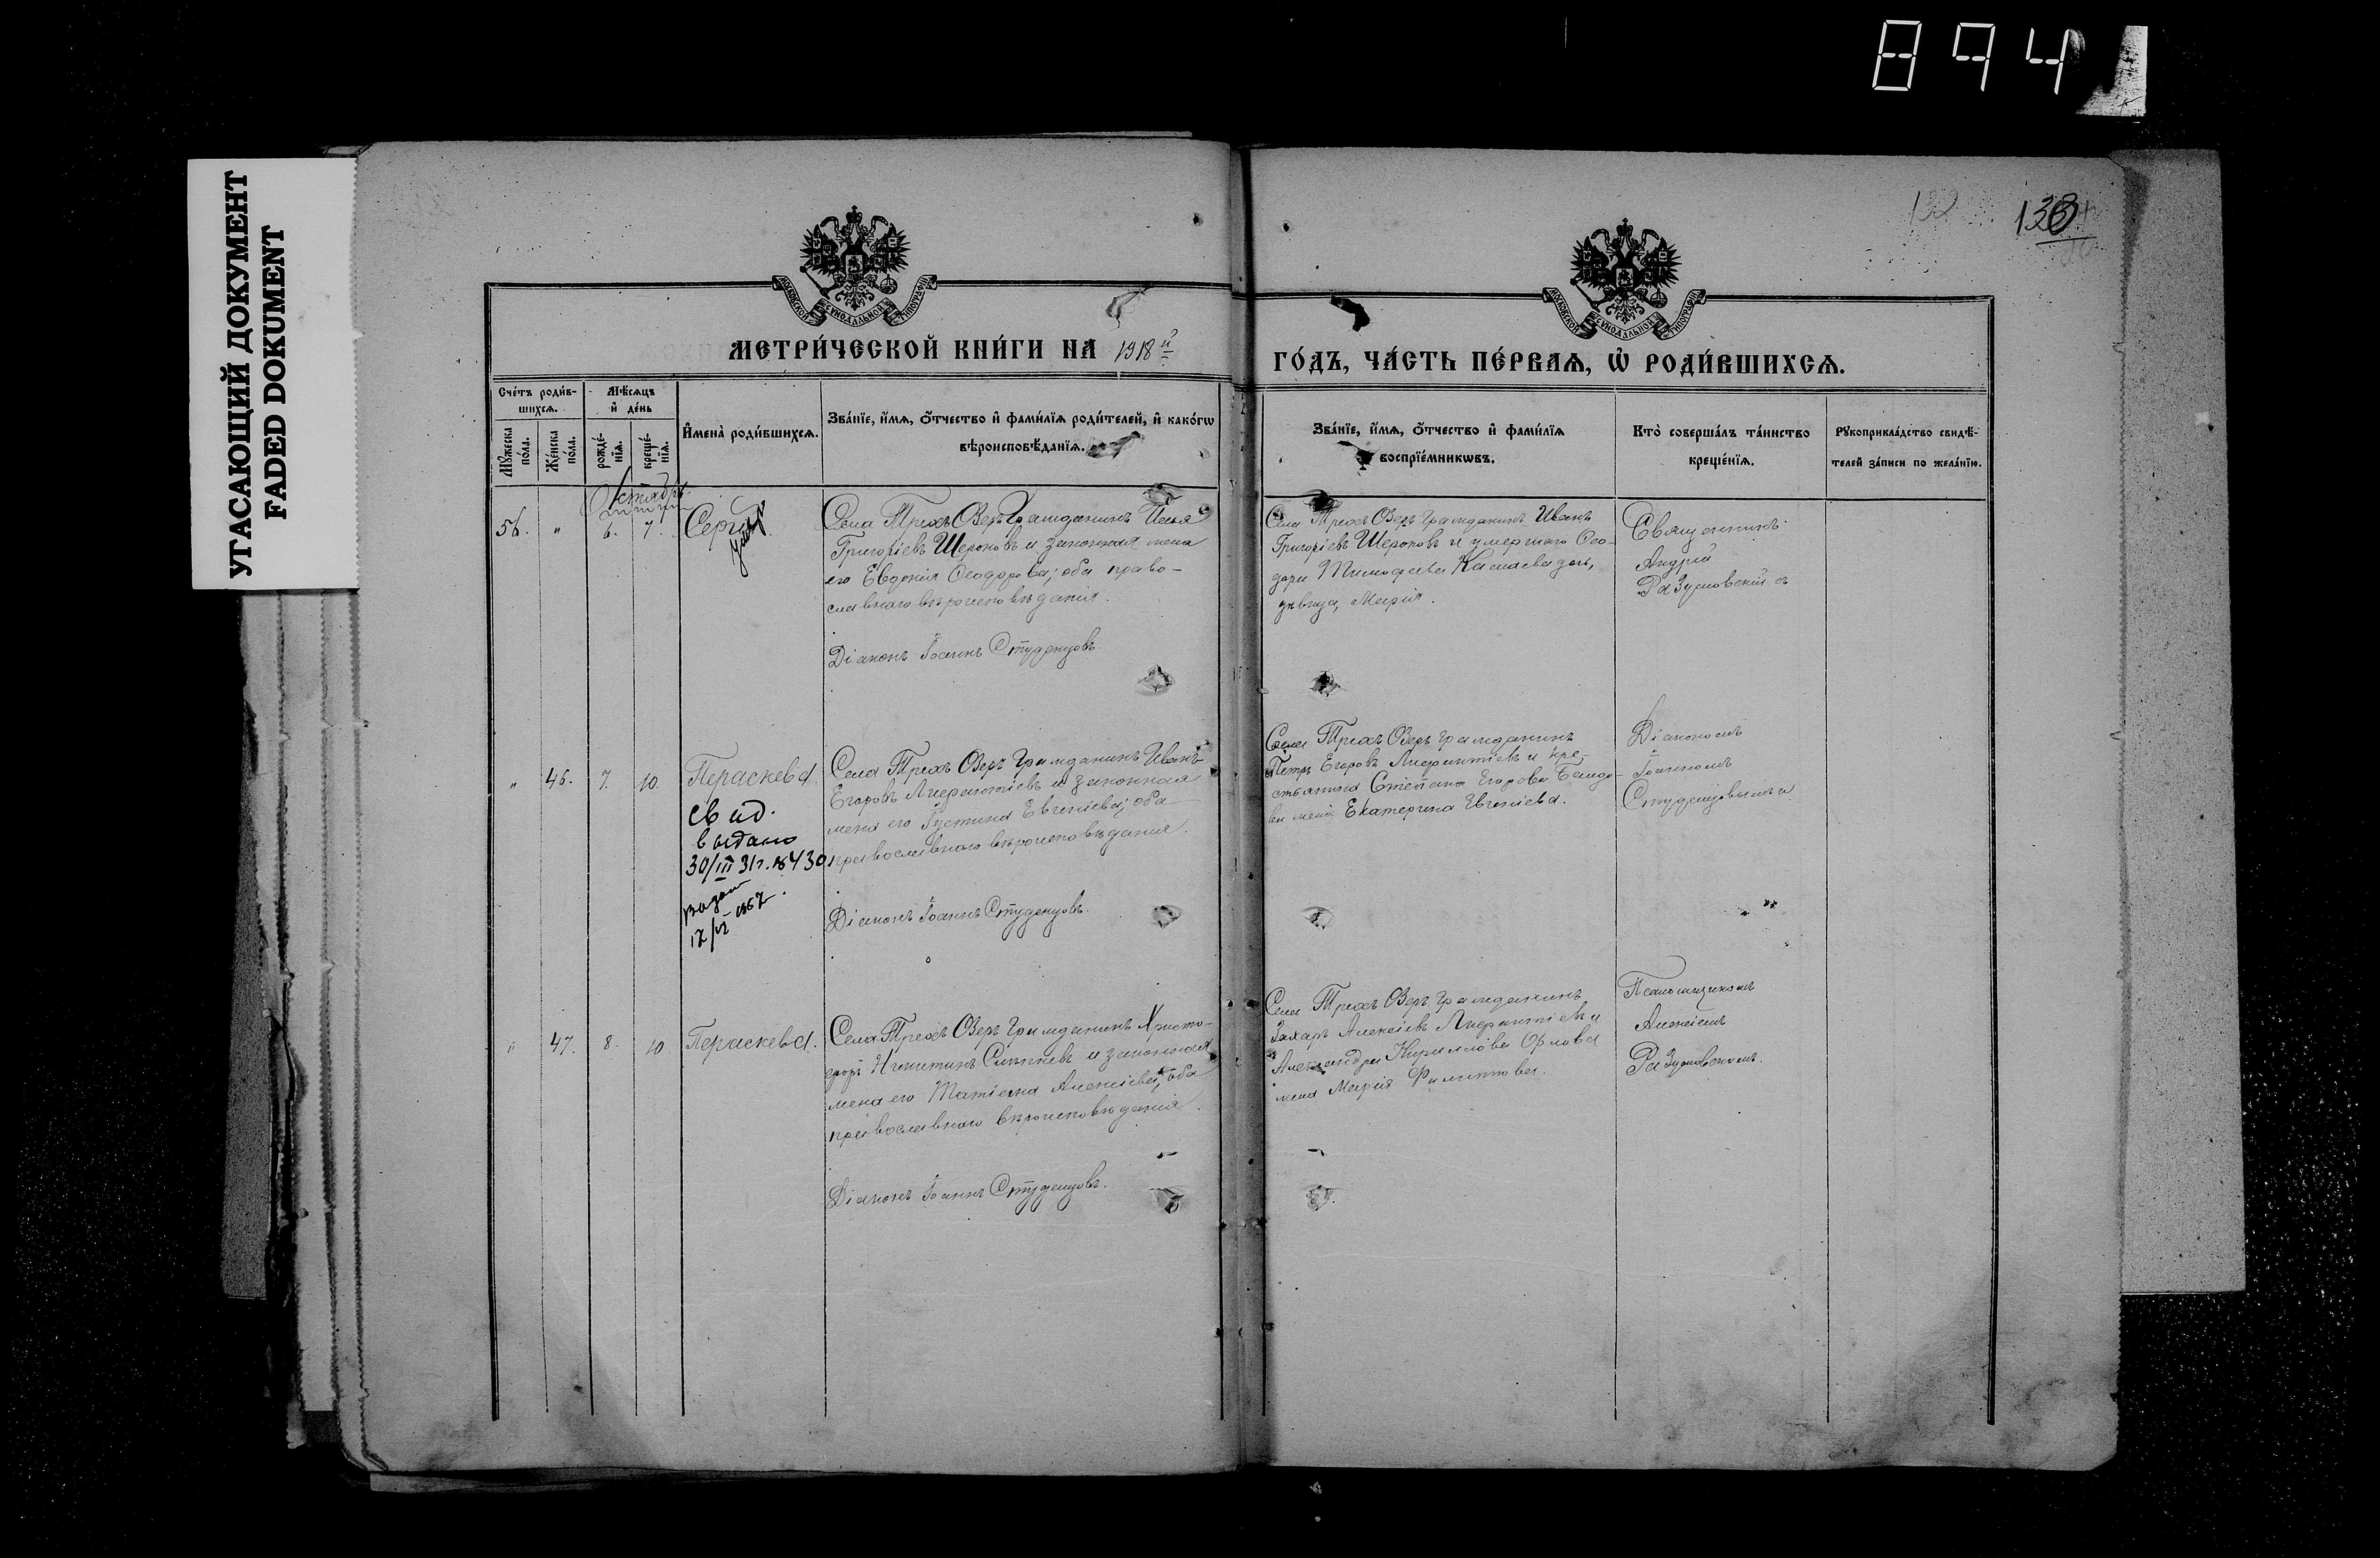 894
УГАСАЮЩИЙ ДОКУМЕНТ
FADED DOKUMENT
132
133
МОСКОВСКОЙ СѴНОДАЛЬНОЙ ТИПОГРАФІИ
МОСКОВСКОЙ СѴНОДАЛЬНОЙ ТИПОГРАФІИ
МЕТРИ́ЧЕСКОЙ КНИ́ГИ НА 1918й
ГО́ДЪ, ЧА́СТЬ ПЕ́РВАѦ, Ѡ҆ РОДИ́ВШИХСѦ.
Сче́тъ роди́в-
шихсѧ.
Мѣ́сѧцъ
и҆ де́нь
Мꙋ́жеска
по́ла.
Же́нска
по́ла.
рожде́-
нїѧ.
креще́-
нїѧ.
И҆мена̀ роди́вшихсѧ.
Зва́нїе, и҆́мѧ, ѻ҆́тчество и҆ фами́лїѧ роди́телей, и҆ како́гѡ
вѣроисповѣ́данїѧ.
Зва́нїе, и҆́мѧ, ѻ҆́тчество и҆ фами́лїѧ
воспрїе́мникѡвъ.
Кто̀ соверша́лъ та́инство
креще́нїѧ.
Рꙋкоприкла́дство свидѣ́-
телей за́писи по жела́нїю.
Октябрь
56. " 6. 7. Сергій
умер
Села Трехъ Озеръ Гражданинъ Илья
Григоріевъ Шероновъ и законная жена
его Евдокія Ѳеодорова; оба право-
славнаго вѣроисповѣданія.
Діаконъ Іоаннъ Студенцовъ.
Села Трехъ Озеръ гражданинъ Иванъ
Григоріевъ Шероновъ и умершаго Ѳео-
дора Тимоѳеева дочь,
дѣвица, Марія.
Священникъ
Андрей
Разумовскій съ
" 46. 7. 10. Параскева
свид.
выдано
30/III 31г. №430
17/VI 1957
Села Трехъ Озеръ Гражданинъ Иванъ
Егоровъ и законная
жена его Іустина Евгеніева; оба
православнаго вѣроисповѣданія.
Діаконъ Іоаннъ Студенцовъ.
Села Трехъ Озеръ гражданинъ
Петръ Егоровъ и кре-
стьянина Степана Егорова
жена Екатерина Евгеніева.
Діакономъ
Іоанномъ
Студенцовымъ
" 47. 8. 10 Параскева.
Села Трехъ Озеръ Гражданинъ Христо-
форъ Никитинъ и законная
жена его Татіана Алексіева; оба
православнаго вѣроисповѣданія.
Діаконъ Іоаннъ Студенцовъ.
Села Трехъ Озеръ гражданинъ
Захаръ Алексіевъ и
Александра Кириллова Орлова
жена Марія Филиппова.
Псаломщикомъ
Алексіемъ
Разумовскимъ.